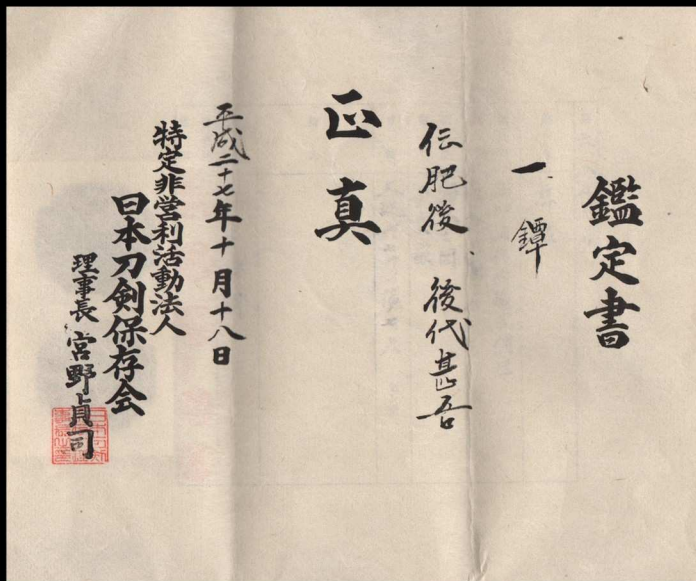 鑑定書
一、鐔
伝肥後 後代甚吾
正真
平成二十七年十月十八日
特定非営利活動法人
日本刀剣保存会
理事長 宮野貞司